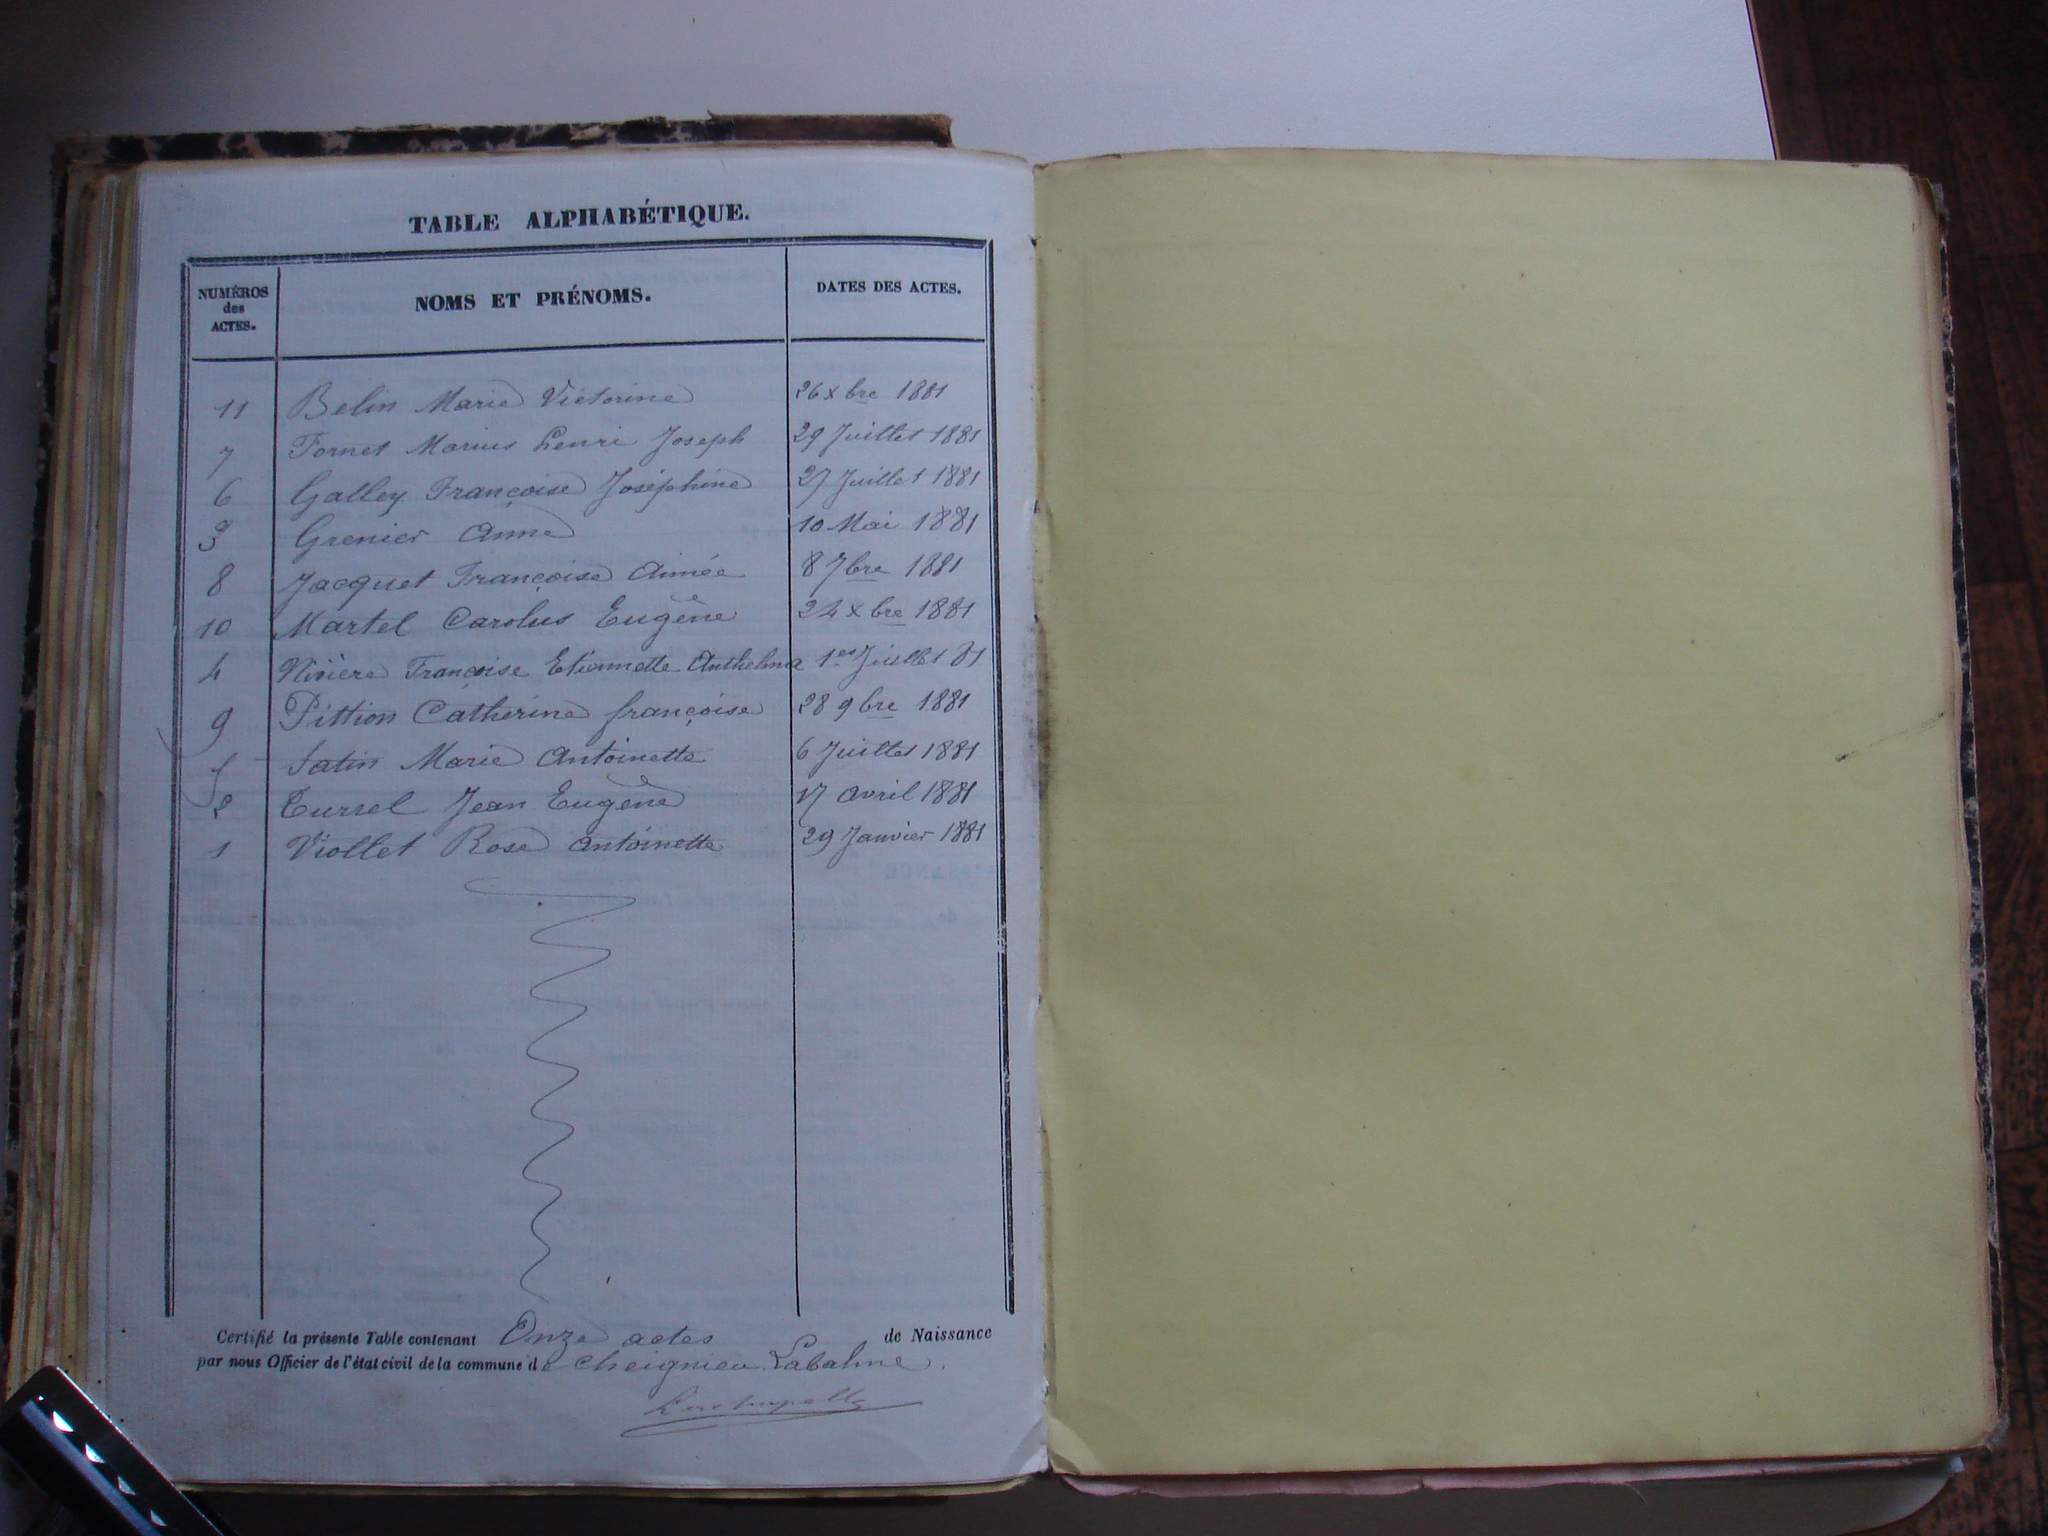 TABLE ALPHABÉTIQUE.
NUMÉROS des ACTES. NOMS ET PRÉNOMS. DATES DES ACTES.
11 Belin Marie Victorine 26 xbre 1881
7 Fornet Marius henri Joseph 29 Juillet 1881
6 Galley Françoise Joséphine 27 Juillet 1881
3 Grenier Anne 10 Mai 1881
8 Jacquet Françoise Aimée 8 7bre 1881
10 Martel Carolus Eugène 24 xbre 1881
4 Nivière Françoise Etiennette Anthelma 1er Juillet 81
9 Pittion Catherine françoise 28 9bre 1881
5 Satin Marie Antoinette 6 Juillet 1881
2 Turrel Jean Eugène 17 avril 1881
1 Viollet Rose antoinette 29 Janvier 1881
Certifié la présente Table contenant Onze actes de Naissance
par nous Officier de l'état civil de la commune de Cheignieu Labalme.